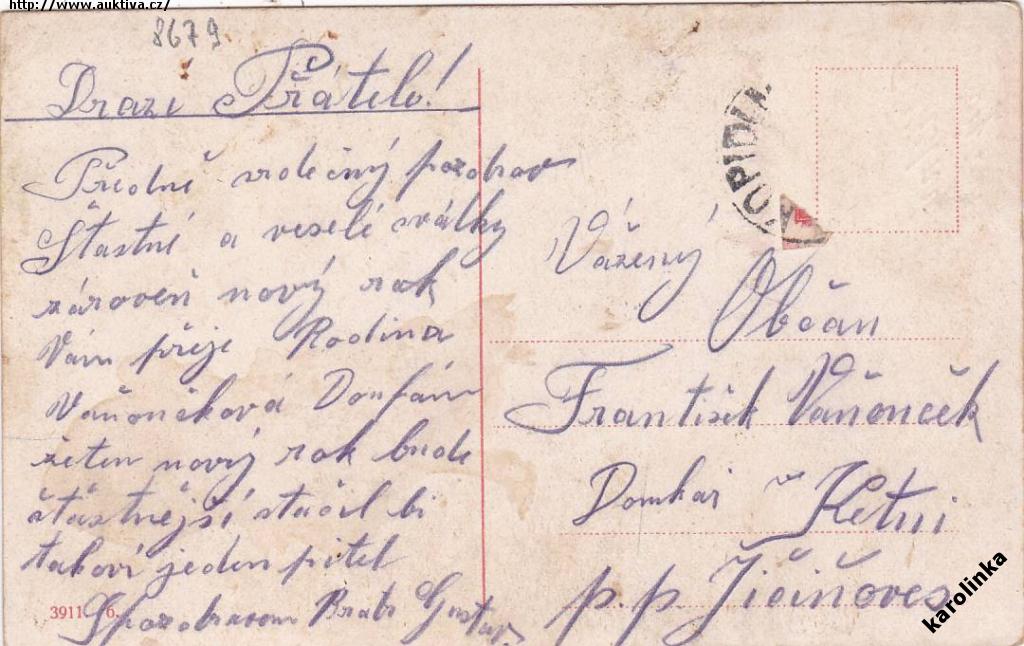 http://www.auktiva.cz/
8679
Drazí Přátelé!
Předně srdečný pozdrav
Šťastné a veselé svátky
zároveň nový rok
Vám přeje Rodina
Vaňončková Doufám
žeten nový rok bude
šťastnější stačil bi
takoví jeden pitel
Spozdravem Bratr Gustav
KOPIDLN
Vážený
Občan
František Vaňonček
Domkař v Ketni
p.p. Jičiňoves
3911 6.
karolinka